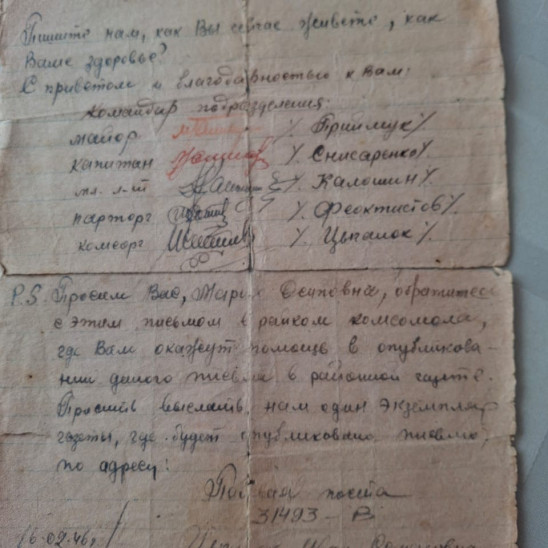 Пишите нам, как Вы сейчас живёте, как
Ваше здоровье?
С приветом и благодарностью к Вам:
командир подразделения:
майор /Приймук/.
капитан /. Снисаренко/.
мл. л-т /. Калошин/.
парторг /. Феоктистов/.
комсорг /. Цыганок/.
P.S. Просим Вас, Мария Осиповна, обратитесь
с этим письмом в райком комсомола,
где Вам окажут помощь в опубликова-
нии данного письма в районной газете.
Просить выслать нам один экземпляр
газеты, где будет опубликовано письмо,
по адресу:
Полевая почта
31493 – В
16-02-46г.